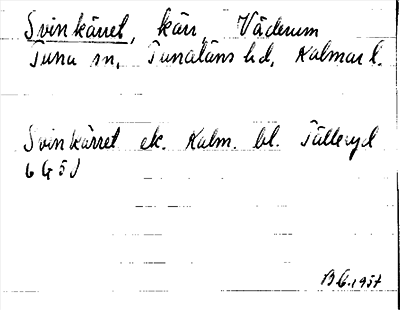 Svinkärret, kärr, Väderum
Tuna sn, Tunaläns hd, Kalmar l.
Svinkärret ek. Kalm. bl. Tulleryd
6 G 5 J
B G. 1957